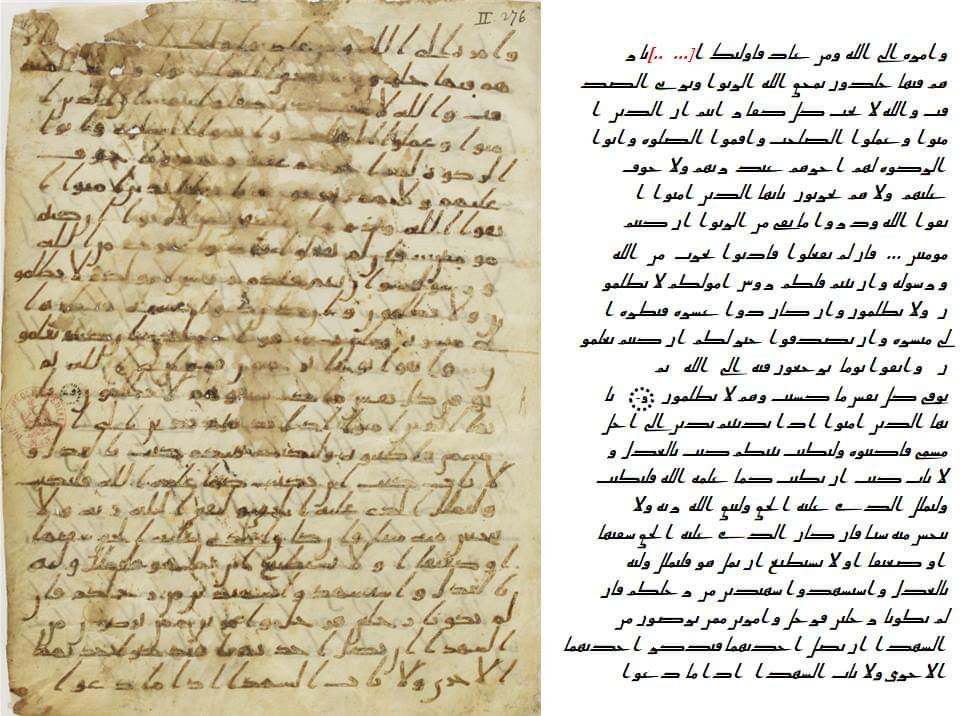 II. 276
وامره الى الله ومن عاد فاولئك ا[... ..]نا ر
هم فيها خلدون يمحق الله الربوا ويربى الصد
قت والله لا يحب كل كفار اثيم ان الذين ا
منوا وعملوا الصلحت واقموا الصلوه واتوا
الزكوه لهم اجرهم عند ربهم ولا خوف
عليهم ولا هم يحزنون يايها الذين امنوا ا
تقوا الله وذروا ما بقى من الربوا ان كنتم
مومنين ... فان لم تفعلوا فاذنوا بحرب من الله
ورسوله وان تبتم فلكم روس امولكم لا تظلمو
ن ولا تظلمون وان كان ذوا عسره فنظره ا
لى ميسره وان تصدقوا خير لكم ان كنتم تعلمو
ن واتقوا يوما ترجعون فيه الى الله ثم
توفى كل نفس ما كسبت وهم لا يظلمون يا
يها الذين امنوا اذا تداينتم بدين الى اجل
مسمى فاكتبوه وليكتب بينكم كتب بالعدل و
لا ياب كتب ان يكتب كما علمه الله فليكتب
وليملل الذى عليه الحق وليتق الله ربه ولا
يبخس منه شيا فان كان الذى عليه الحق سفيها
او ضعيفا او لا يستطيع ان يمل هو فليملل وليه
بالعدل واستشهدوا شهيدين من رجلكم فان
لم يكونا رجلين فرجل وامرتين ممن ترضون من
الشهدا ان تضل احديهما فتذكر احديهما
الاخرى ولا ياب الشهدا اذا ما دعوا